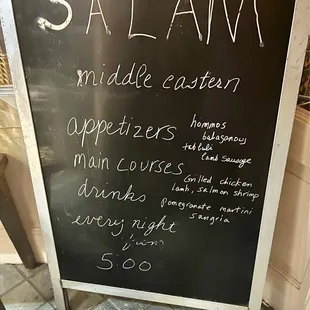 SALAM
middle eastern
appetizers
hommos
babaganous
tabuli
lamb sausage
main courses
Grilled chicken
lamb, salmon shrimp
drinks
pomegranate martini
sangria
every night
5:00